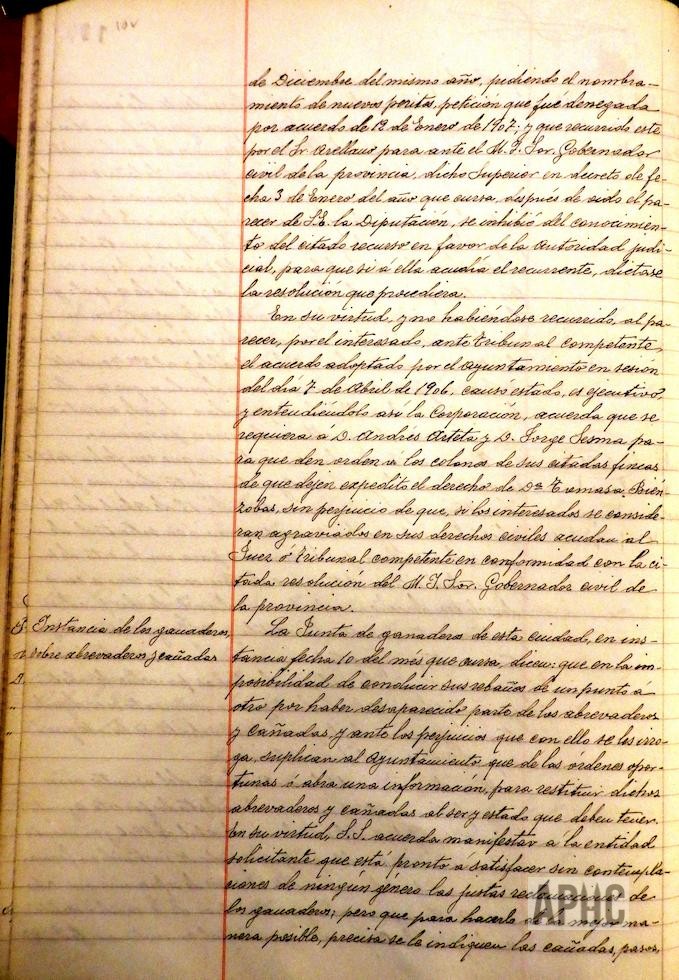 de Diciembre del mismo año, pidiendo el nombra-
miento de nuevos peritos, petición que fué denegada
por acuerdo de 12 de Enero de 1907; y que recurrido este
por el Sr. Arellano para ante el M. I. Sor. Gobernador
civil de la provincia, dicho Superior en decreto de fe-
cha 3 de Enero del año que cursa, después de oido el pa-
recer de S.E. la Diputación, se inhibió del conocimien-
to del citado recurso en favor de la autoridad judi-
cial, para que si á ella acudía el recurrente, dictase
la resolución que procediera.
En su virtud, y no habiéndose recurrido, al pa-
recer, por el interesado, ante tribunal competente,
el acuerdo adoptado por el Ayuntamiento en sesion
del dia 7 de Abril de 1906, causó estado, es ejecutivo,
y entendiéndolo asi la Corporación, acuerda que se
requiera á D. Andrés Arteta y D. Jorge Sesma pa-
ra que den orden á los colonos de sus citadas fincas
de que dejen expedito el derecho de Dª Tomasa Bien-
zobas, sin perjuicio de que, si los interesados se conside-
ran agraviados en sus derechos civiles acudan al
Juez ó tribunal competente en conformidad con la ci-
tada resolución del M. I. Sor. Gobernador civil de
la provincia.
Instancia de los ganaderos,
sobre abrevaderos y cañadas
La Junta de ganaderos de esta ciudad, en ins-
tancia fecha 10 del mes que cursa, dicen: que en la im-
posibilidad de conducir sus rebaños de un punto á
otro por haber desaparecido parte de los abrevaderos
y cañadas y ante los perjuicios que con ello se les irro-
ga, suplican al Ayuntamiento que de las ordenes opor-
tunas ó abra una información, para restituir dichos
abrevaderos y cañadas al ser y estado que deben tener.
En su virtud, S.S. acuerda manifestar á la entidad
solicitante que está pronto á satisfacer sin contempla-
ciones de ningún género las justas reclamaciones de
los ganaderos; pero que para hacerlo de la mejor ma-
nera posible, precisa se le indiquen las cañadas, pasos,
APHC